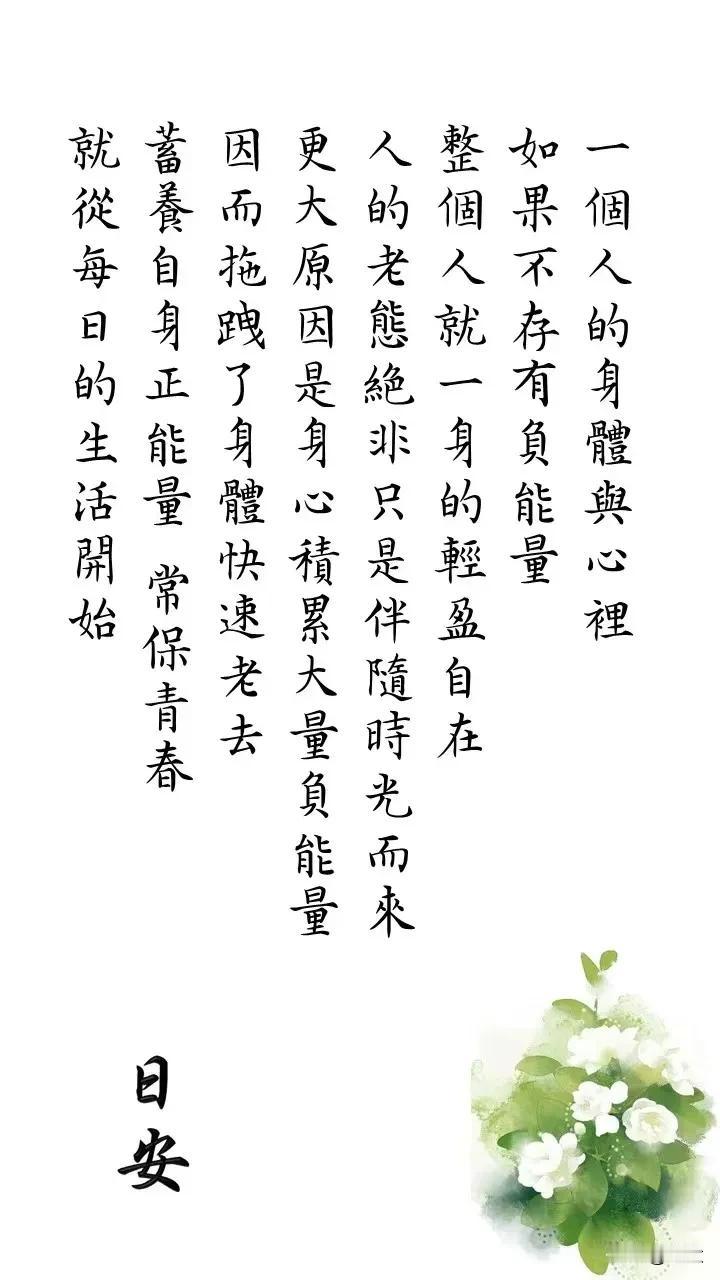 一個人的身體與心裡
如果不存有負能量
整個人就一身的輕盈自在
人的老態絕非只是伴隨時光而來
更大原因是身心積累大量負能量
因而拖跩了身體快速老去
蓄養自身正能量 常保青春
就從每日的生活開始
日安